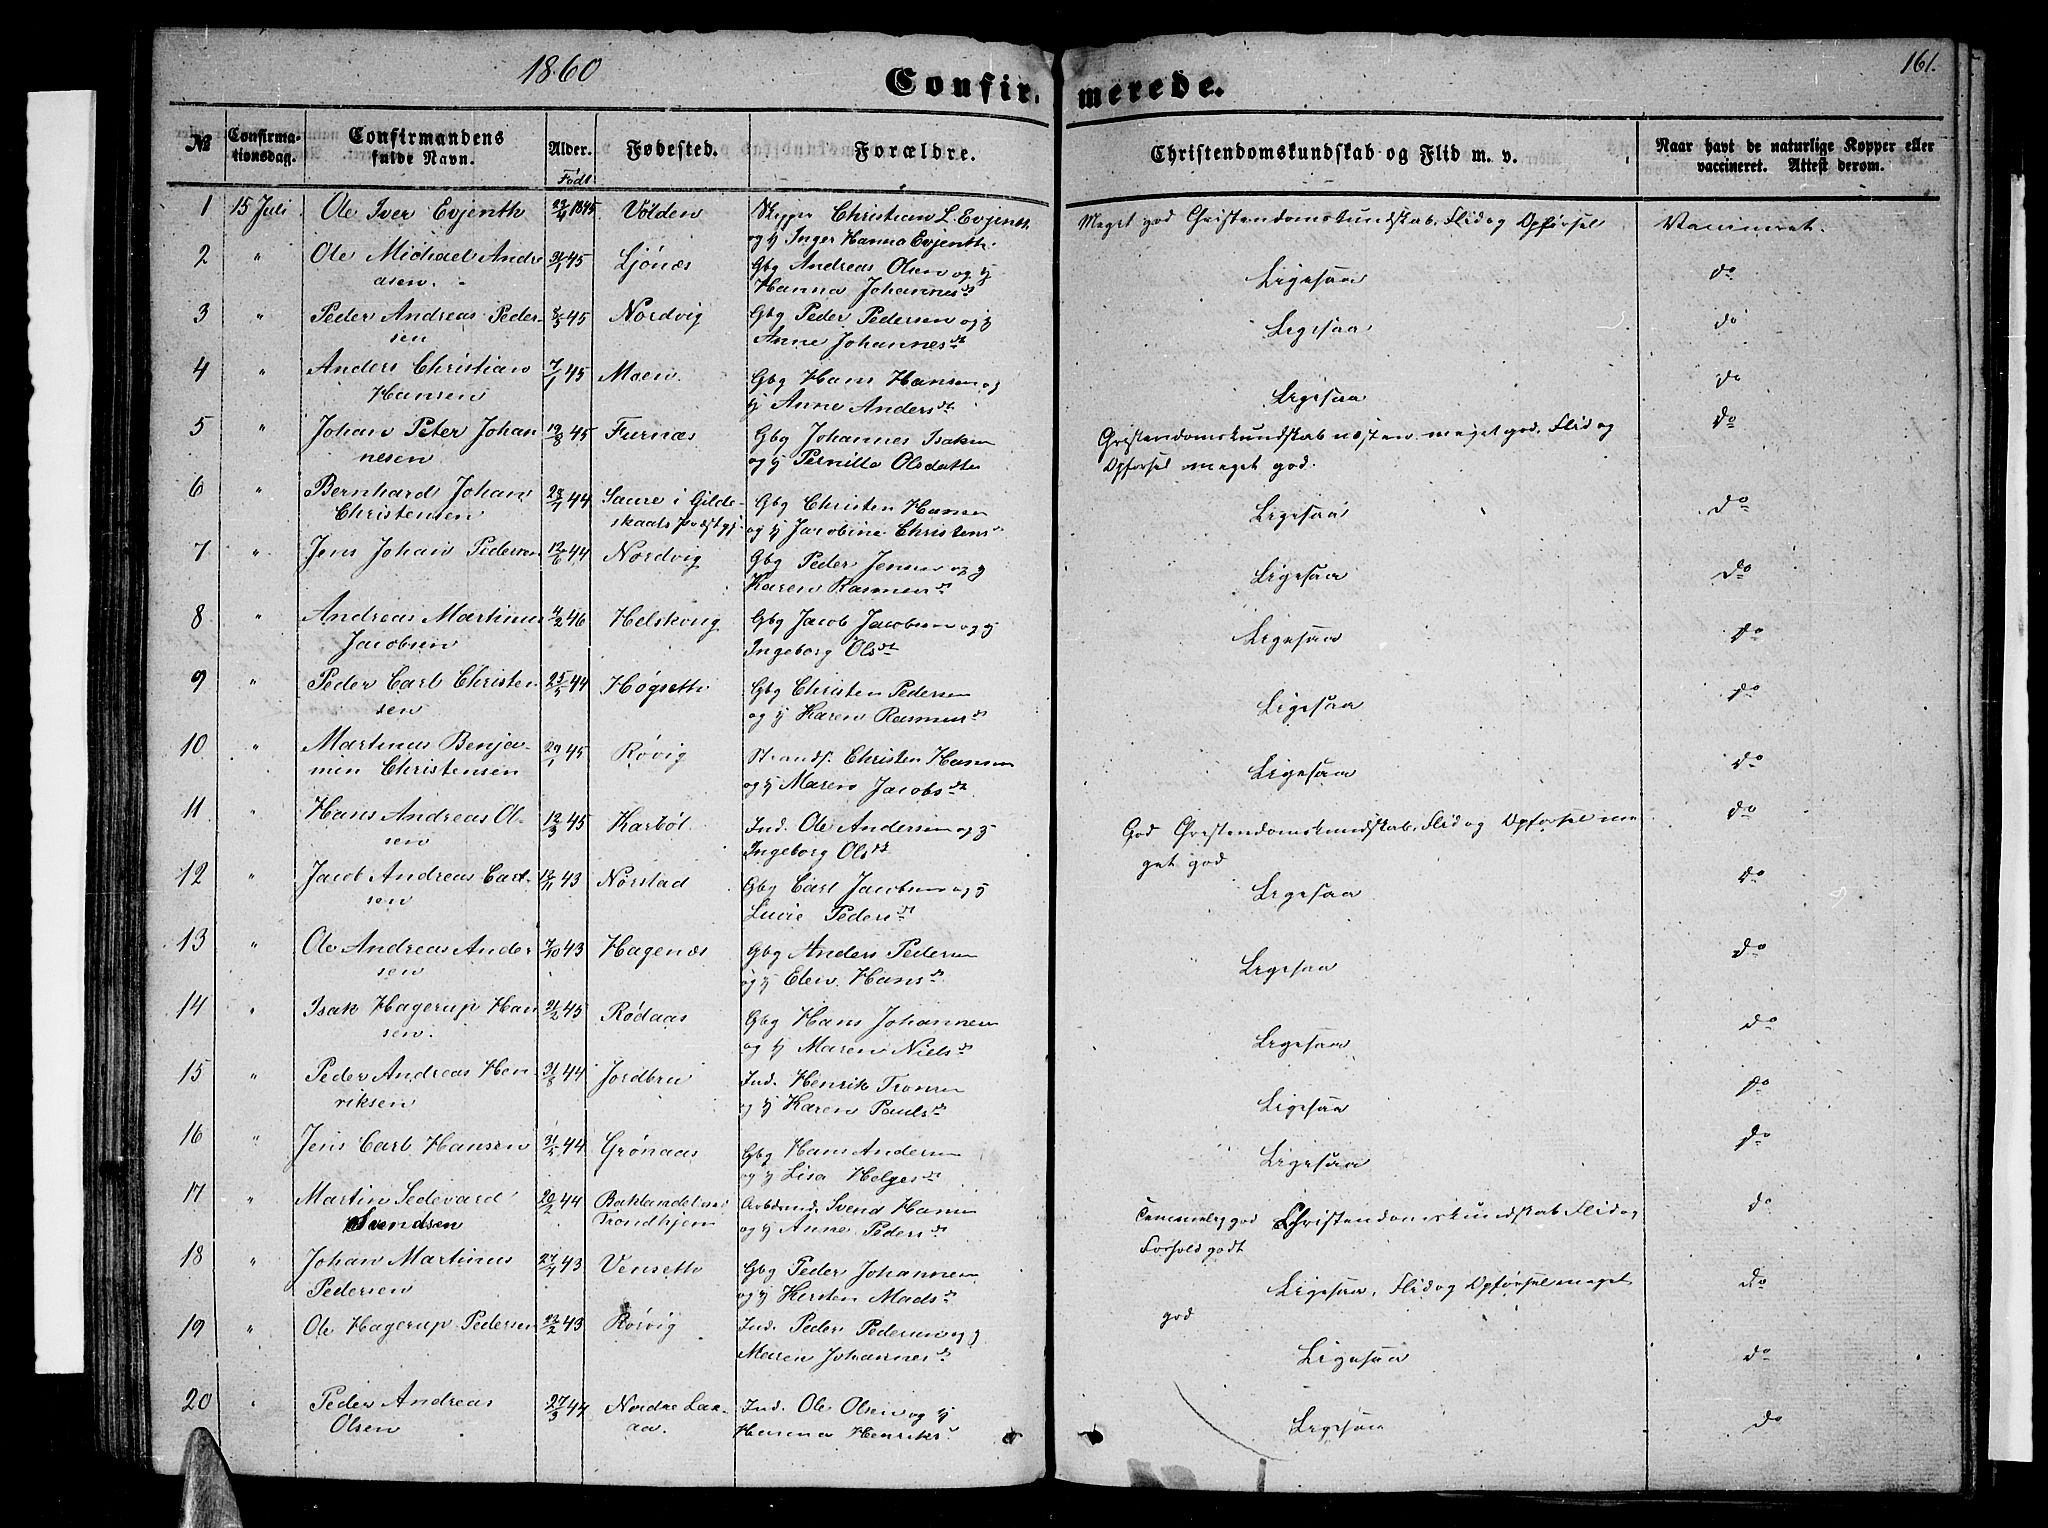 1860
161.
Confir-merede.
№
Confirma-
tionsdag.
Confirmandens
fulde Navn.
Alder.
Født
Fødested.
Forældre.
Christendomskundskab og Flid m. v.
Naar havt de naturlige Kopper eller
vaccineret. Attest derom.
1 15 Juli Ole Iver Evjenth 1845 Volden Christian L. Evjenth Meget god Christendomskundskab, Flid og Opførsel Vaccineret.
og Inger Hanna Evjenth
2 " Ole Michael Andre 45 Ljönæs Gbg Andreas Olsen og
asen. Hanna Johannesdt Ligesaa do
3 " Peder Andreas Peder- 8/3 45 Nordvig Gbg Peder Pedersen og Ligesaa do
sen Anne Johannesdt
4 " Anders Christian 7/1 45 Moen Gbg Hans Hansen og Ligesaa do
Hansen Anne Andersdt
5 " Johan Peter Johan 19/8 45 Furnæs Gbg Johannes Isaksen Christendomskundskab næsten meget god, Flid og do
nesen og Pernilla Olsdatter Opførsel meget god.
6 " Bernhard Johan 44 Saure i Gilde- Gbg Christen Hansen Ligesaa do
Christensen skaals Præstgj. og Jacobine Christens
7 " Jens Johan Pedersen 12/6 44 Nordvig Gbg Peder Jensen og Ligesaa do
Karen Rasmusdt
8 " Andreas Martinus 4/2 46 Helskong Gbg Jacob Jacobsen og Ligesaa do
Jacobsen Ingeborg Olsdt
9 " Peder Carl Christen 25/5 44 Høgseth Gbg Christen Pedersen Ligesaa do
sen og Karen Rasmusdt
10 " Martinus Benja- 29/1 45 Rövig Strands. Christen Hansen Ligesaa do
min Christensen og Maren Jacobsdt
11 " Hans Andreas Ol- 12/3 45 Karbøl Ind. Ole Andersen og God Christendomskundskab, Flid og Opførsel me do
sen Ingeborg Olsdt get god
12 " Jacob Andreas Carl- 12/11 43 Nørstad Gbg Carl Jacobsen og Ligesaa do
sen Lucie Pedersdt
13 " Ole Andreas Ander 7/10 43 Hagenæs Gbg Anders Pedersen Ligesaa do
sen og Elen Hansdt
14 " Isak Hagerup Han 45 Rødaas Gbg Hans Johannesen Ligesaa do
sen. og Maren Nielsdt
15 " Peder Andreas Hen- 31/8 44 Jordbru Ind. Henrik Tronsen Ligesaa do
riksen og Karen Paulsdt
16 " Jens Carl Hansen 31/5 44 Grønaas Gbg Hans Andersen Ligesaa do
og Lisa Helgesdt
17 " Martin Sedevard 20/2 44 Baklandet ved Svend Hansen Temmelig god Christendomskundskab Flid og do
Svendsen Trondhjem og Anne Pedersdt Forhold godt
18 " Johan Martinus 43 Venseth Gbg Peder Johannesen Ligesaa, Flid og Opførsel meget do
Pedersen og Kirsten Madsdt god
19 " Ole Hagerup Pedersen 22/2 43 Rørvig Ind. Peder Pedersen og Ligesaa do
Maren Johannesdt
20 " Peder Andreas 27/3 44 Nordre Ind. Ole Olsen og Ligesaa do
Olsen Hanna Henriks